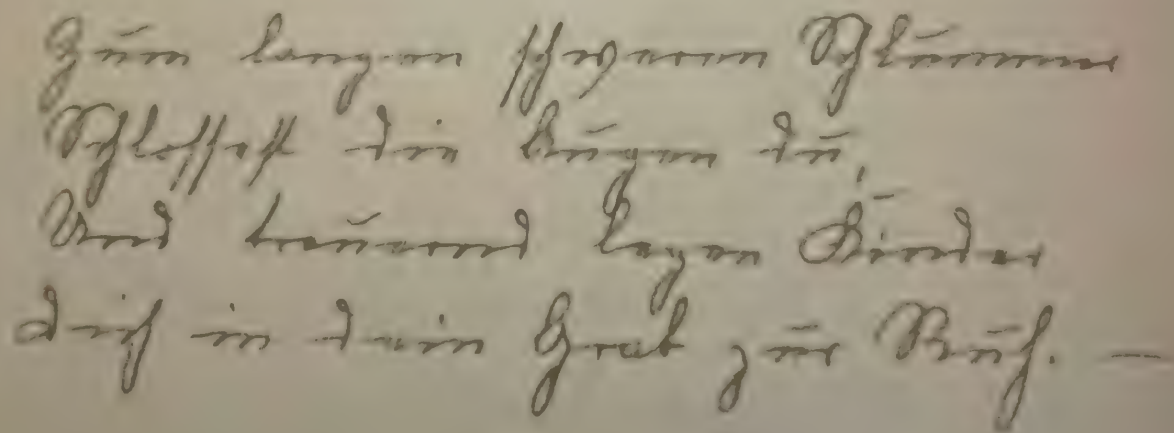 Zum langen schweren Schlummer
Schlossest die Augen du,
Und trauernd legen Kinder
dich in dein Grab zur Ruh. —